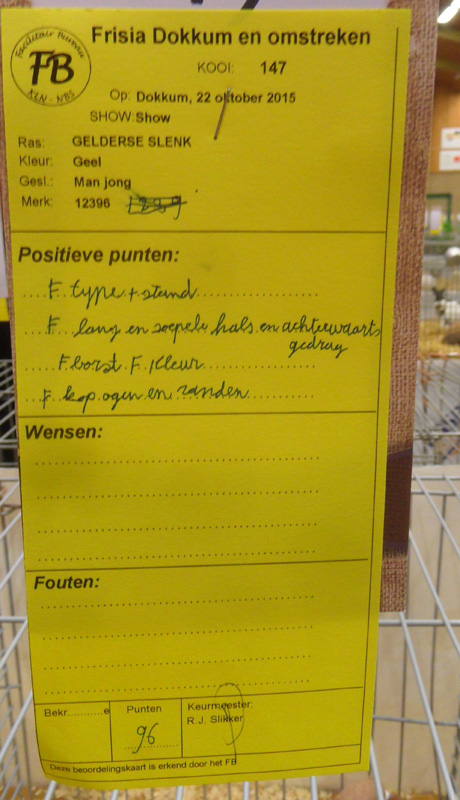 Facilitair Bureau
FB
KLN - NBS
Frisia Dokkum en omstreken
KOOI: 147
Op: Dokkum, 22 oktober 2015
SHOW: Show
Ras: GELDERSE SLENK
Kleur: Geel
Gesl.: Man jong
Merk: 12396
Positieve punten:
F. type + stand
F. lang en soepele hals en achterwaarts
gedrag
F. borst. F. Kleur
F. kop. ogen en randen
Wensen:
Fouten:
Bekr..........e Punten Keurmeester:
R.J. Slikker
96
Deze beoordelingskaart is erkend door het FB